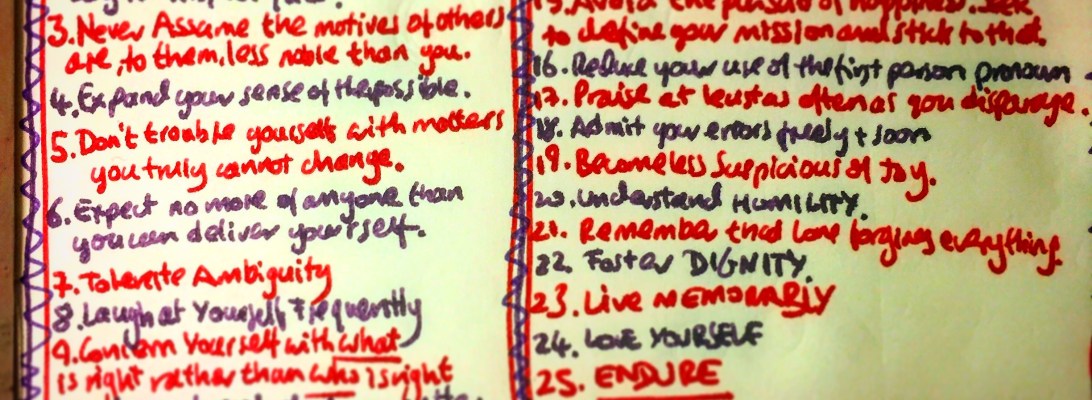 3. Never Assume the motives of others
are, to them, less noble than you.
4. Expand your sense of the possible.
5. Don't trouble yourself with matters
you truly cannot change.
6. Expect no more of anyone than
you can deliver yourself.
7. Tolerate Ambiguity
8. Laugh at Yourself Frequently
9. Concern Yourself with what
is right rather than who is right
15. Avoid the pursuit of happiness. Seek
to define your mission and stick to that.
16. Reduce your use of the first person pronoun
17. Praise at least as often as you disparage.
18. Admit your errors freely + soon
19. Become less Suspicious of Joy.
20. Understand HUMILITY.
21. Remember that love forgives everything.
22. Foster DIGNITY.
23. Live MEMORABLY
24. LOVE YOURSELF
25. ENDURE